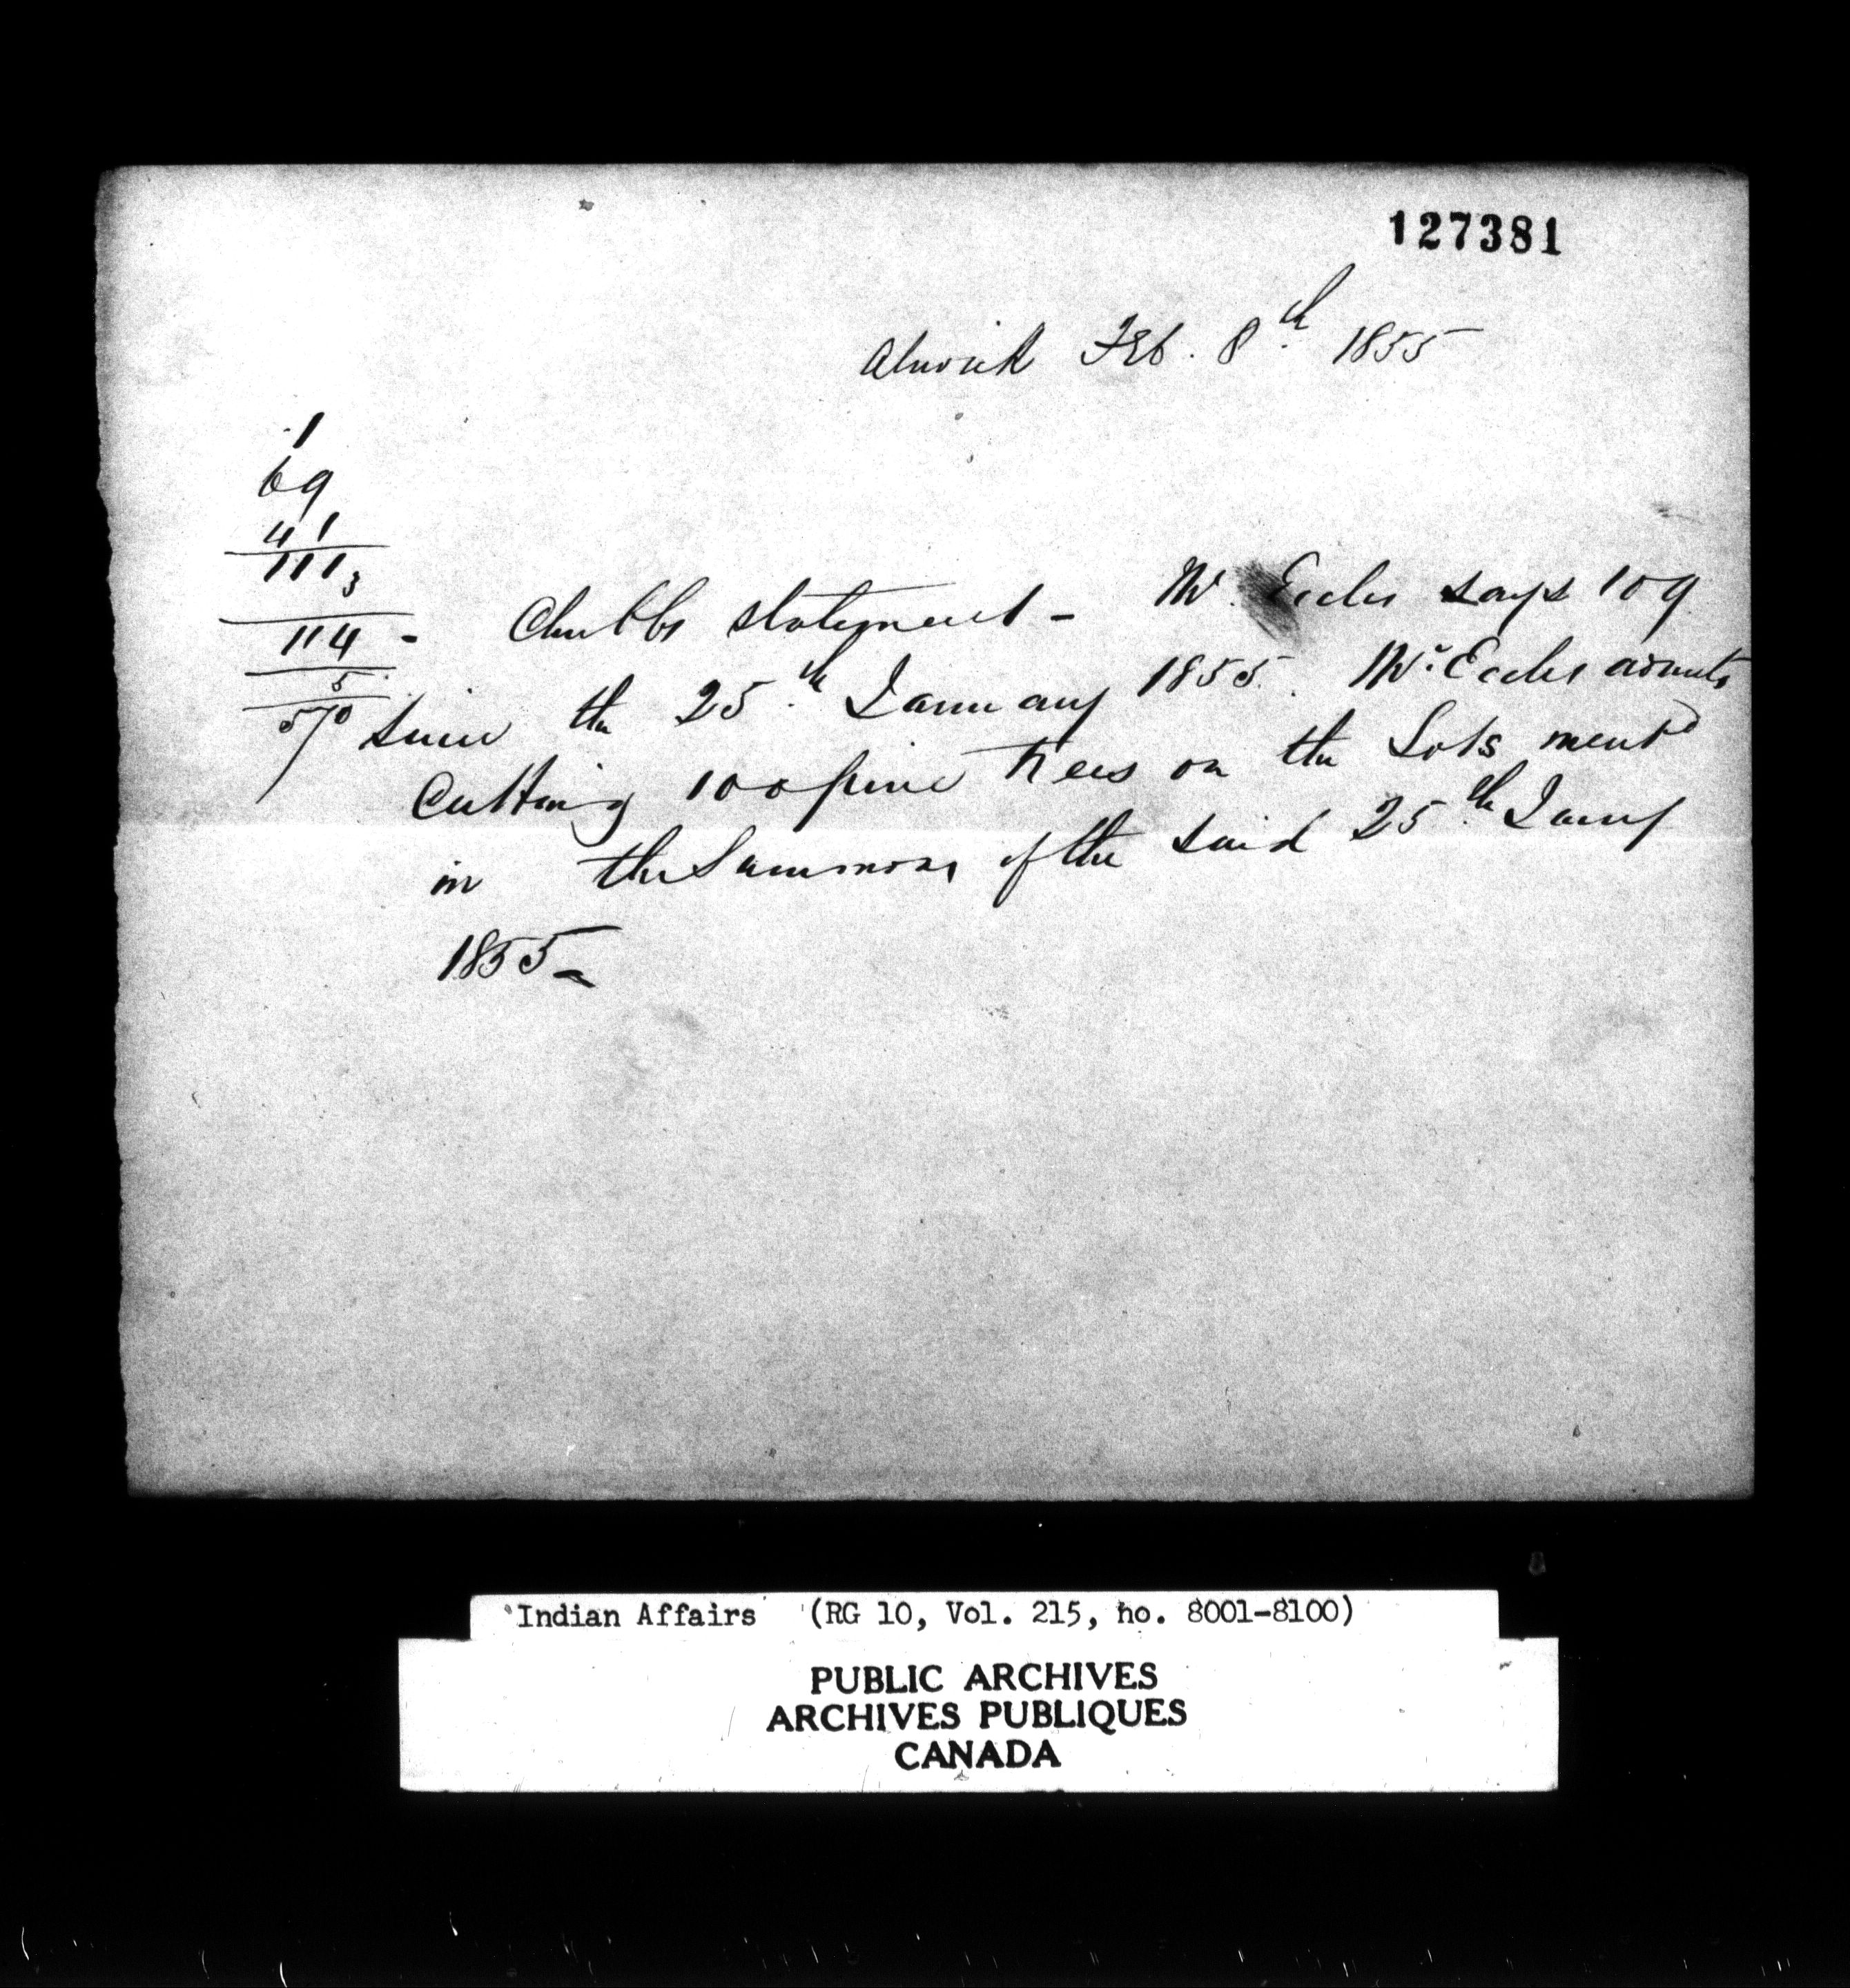 127381
Alnwick Feb. 8th 1855
1
69
41
111
3
114 - Chubbs statement - Mr. Eccles says 109
5
570
since the 25th January 1855. Mr. Eccles admits
Cutting 100 pine trees on the Lots mentd
in the Summons of the said 25th Jany
1855
Indian Affairs (RG 10, Vol. 215, no. 8001-8100)
PUBLIC ARCHIVES
ARCHIVES PUBLIQUES
CANADA